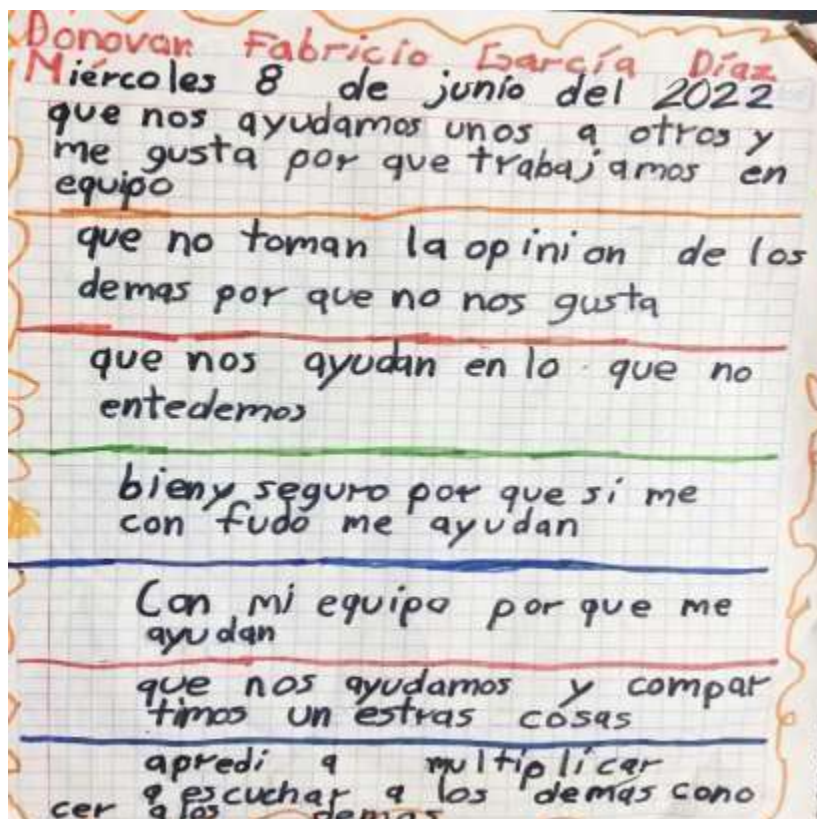 Donovan Fabricio García Díaz
Miércoles 8 de junio del 2022
que nos ayudamos unos a otros y
me gusta por que trabajamos en
equipo
que no toman la opinion de los
demas por que no nos gusta
que nos ayudan en lo que no
entedemos
bien y seguro por que si me
con fudo me ayudan
Con mi equipo por que me
ayudan
que nos ayudamos y compar
timos un estras cosas
apredi a multiplicar
a escuchar a los demás cono
cer a los demas